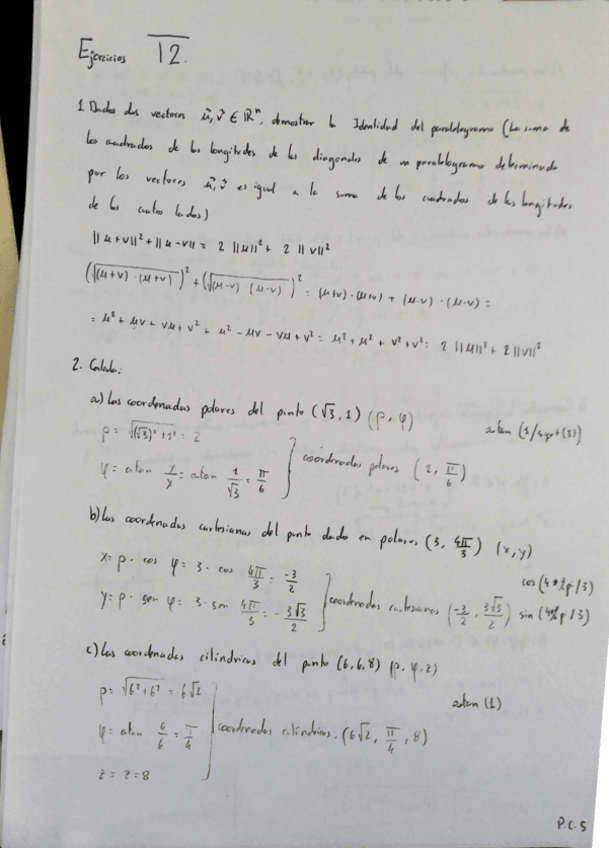 Ejercicios 12.
1. Dados dos vectores ũ, ṽ ∈ ℝⁿ, demostrar la Identidad del paralelogramo (La suma de
los cuadrados de las longitudes de las diagonales de un paralelogramo determinado
por los vectores ũ, ṽ es igual a la suma de los cuadrados de las longitudes
de los cuatro lados)
||μ+v||² + ||μ-v||² = 2 ||μ||² + 2 ||v||²
(√(μ+v)·(μ+v))² + (√(μ-v)·(μ-v))² = (μ+v)·(μ+v) + (μ-v)·(μ-v) =
= μ² + μv + vμ + v² + μ² - μv - vμ + v² = μ² + μ² + v² + v² = 2 ||μ||² + 2 ||v||²
2. Calcula:
a) Las coordenadas polares del punto (√3, 1) (ρ, φ)
ρ = √(√3)² + 1² = 2
atan (1/sqrt(3))
φ = atan y/x = atan 1/√3 = π/6 } coordenadas polares (2, π/6)
b) Las coordenadas cartesianas del punto dado en polares (3, 4π/3) (x, y)
x = ρ · cos φ = 3 · cos 4π/3 = -3/2
cos (4*%pi/3)
y = ρ · sen φ = 3 · sen 4π/3 = -3√3/2 } coordenadas cartesianas (-3/2, 3√3/2) sin (4*%pi/3)
c) Las coordenadas cilíndricas del punto (6, 6, 8) (ρ, φ, z)
ρ = √6² + 6² = 6√2
atan (1)
φ = atan 6/6 = π/4 } coordenadas cilíndricas. (6√2, π/4, 8)
z = z = 8
P.C. 5